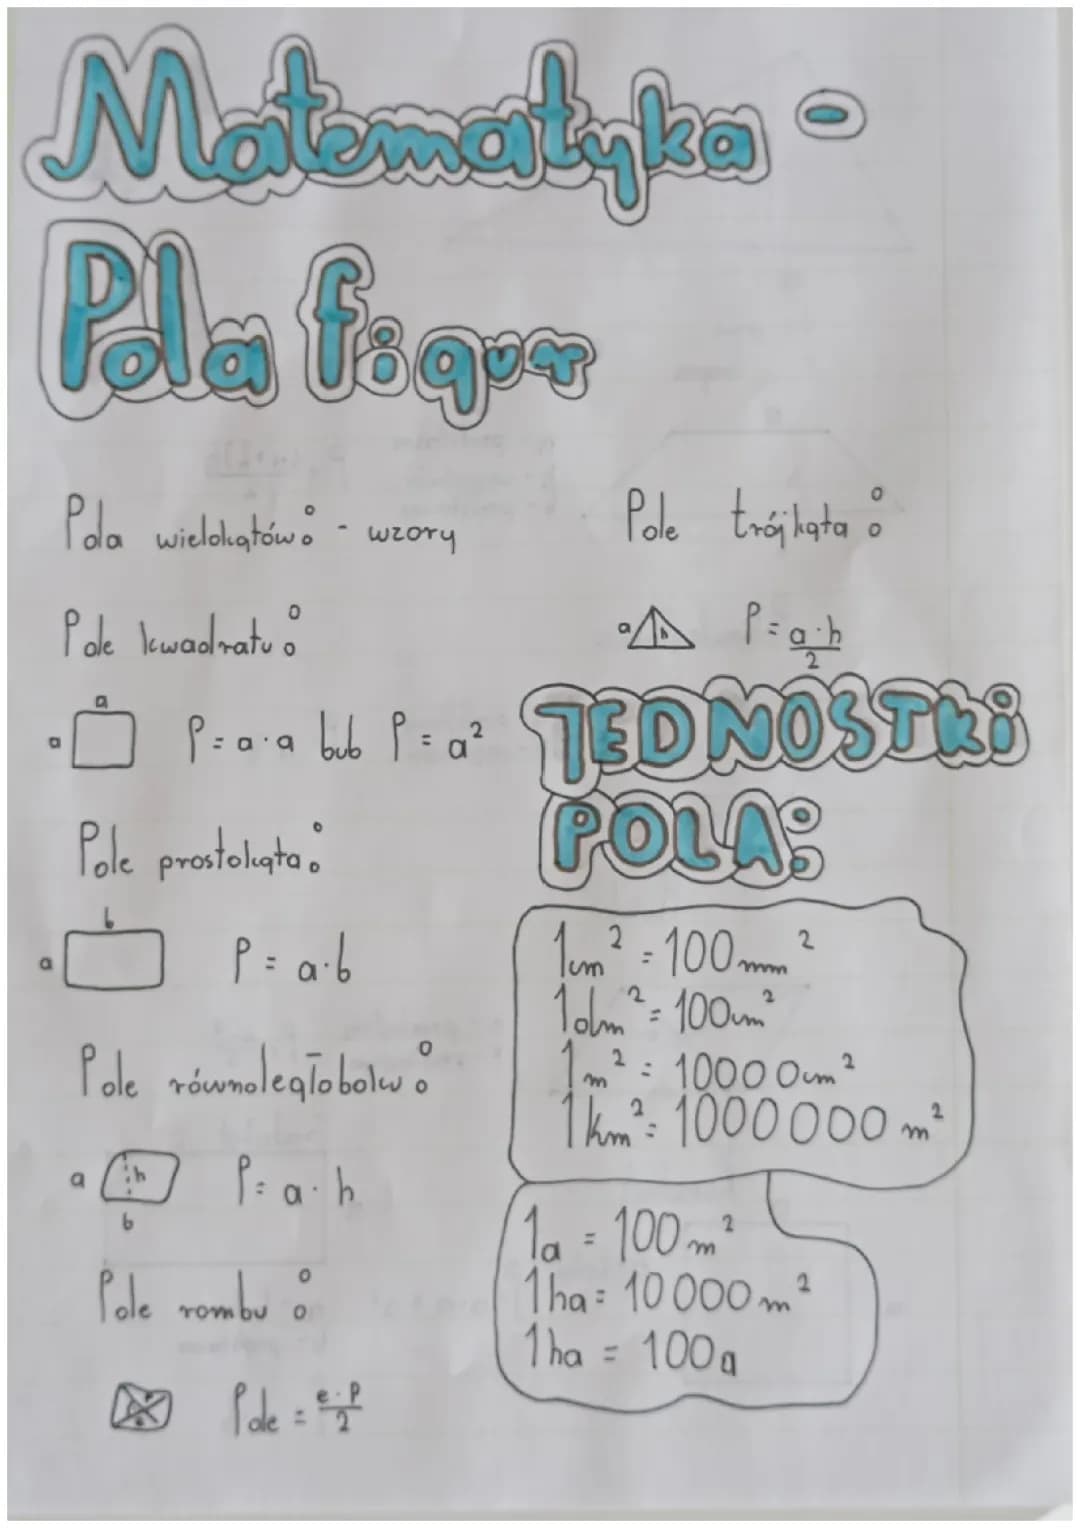 Matematyka -
Pola figur
Pola wielokątów: - wzory
Pole kwadratu:
a
a
P = a·a lub P = a²
Pole prostokąta:
b
a
P = a·b
Pole równoległoboku:
a
h
b
P = a·h
Pole rombu:
Pole = e·f/2
Pole trójkąta:
a
h
P = a·h/2
JEDNOSTKi
POLA:
1cm² = 100mm²
1dm² = 100cm²
1m² = 10000cm²
1km² = 1000000 m²
1a = 100m²
1ha = 10 000m²
1ha = 100a